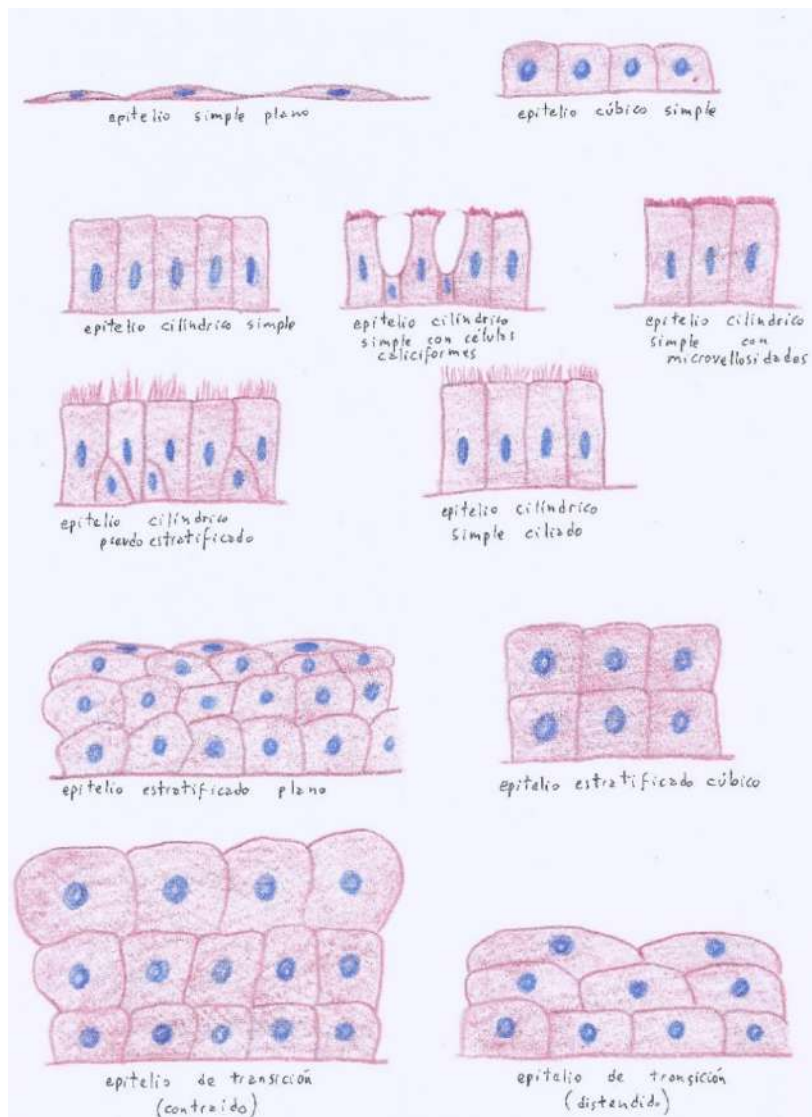 epitelio simple plano
epitelio cúbico simple
epitelio cilíndrico simple
epitelio cilíndrico
simple con células
caliciformes
epitelio cilíndrico
simple con
microvellosidades
epitelio cilíndrico
pseudoestratificado
epitelio cilíndrico
simple ciliado
epitelio estratificado plano
epitelio estratificado cúbico
epitelio de transición
(contraido)
epitelio de transición
(distendido)